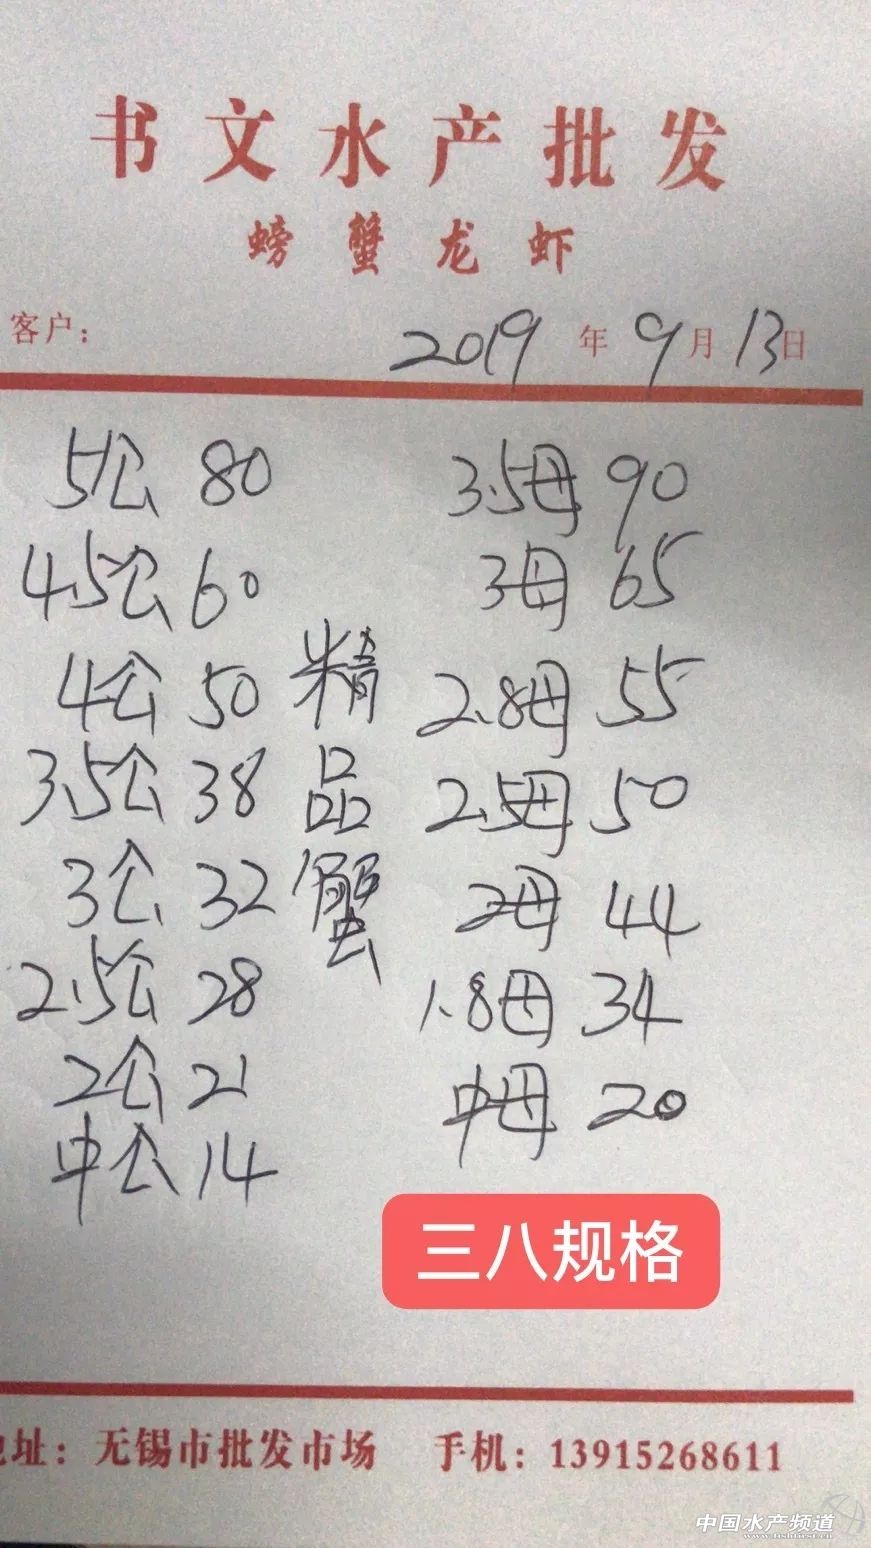 书文水产批发
螃蟹龙虾
客户：
2019年9月13日
5公 80
4.5公 60
4公 50
3.5公 38
3公 32
2.5公 28
2公 21
中公 14
精品蟹
3.5母 90
3母 65
2.8母 55
2.5母 50
2母 44
1.8母 34
中母 20
三八规格
地址：无锡市批发市场 手机：13915268611
中国水产频道
www.fishfirst.cn